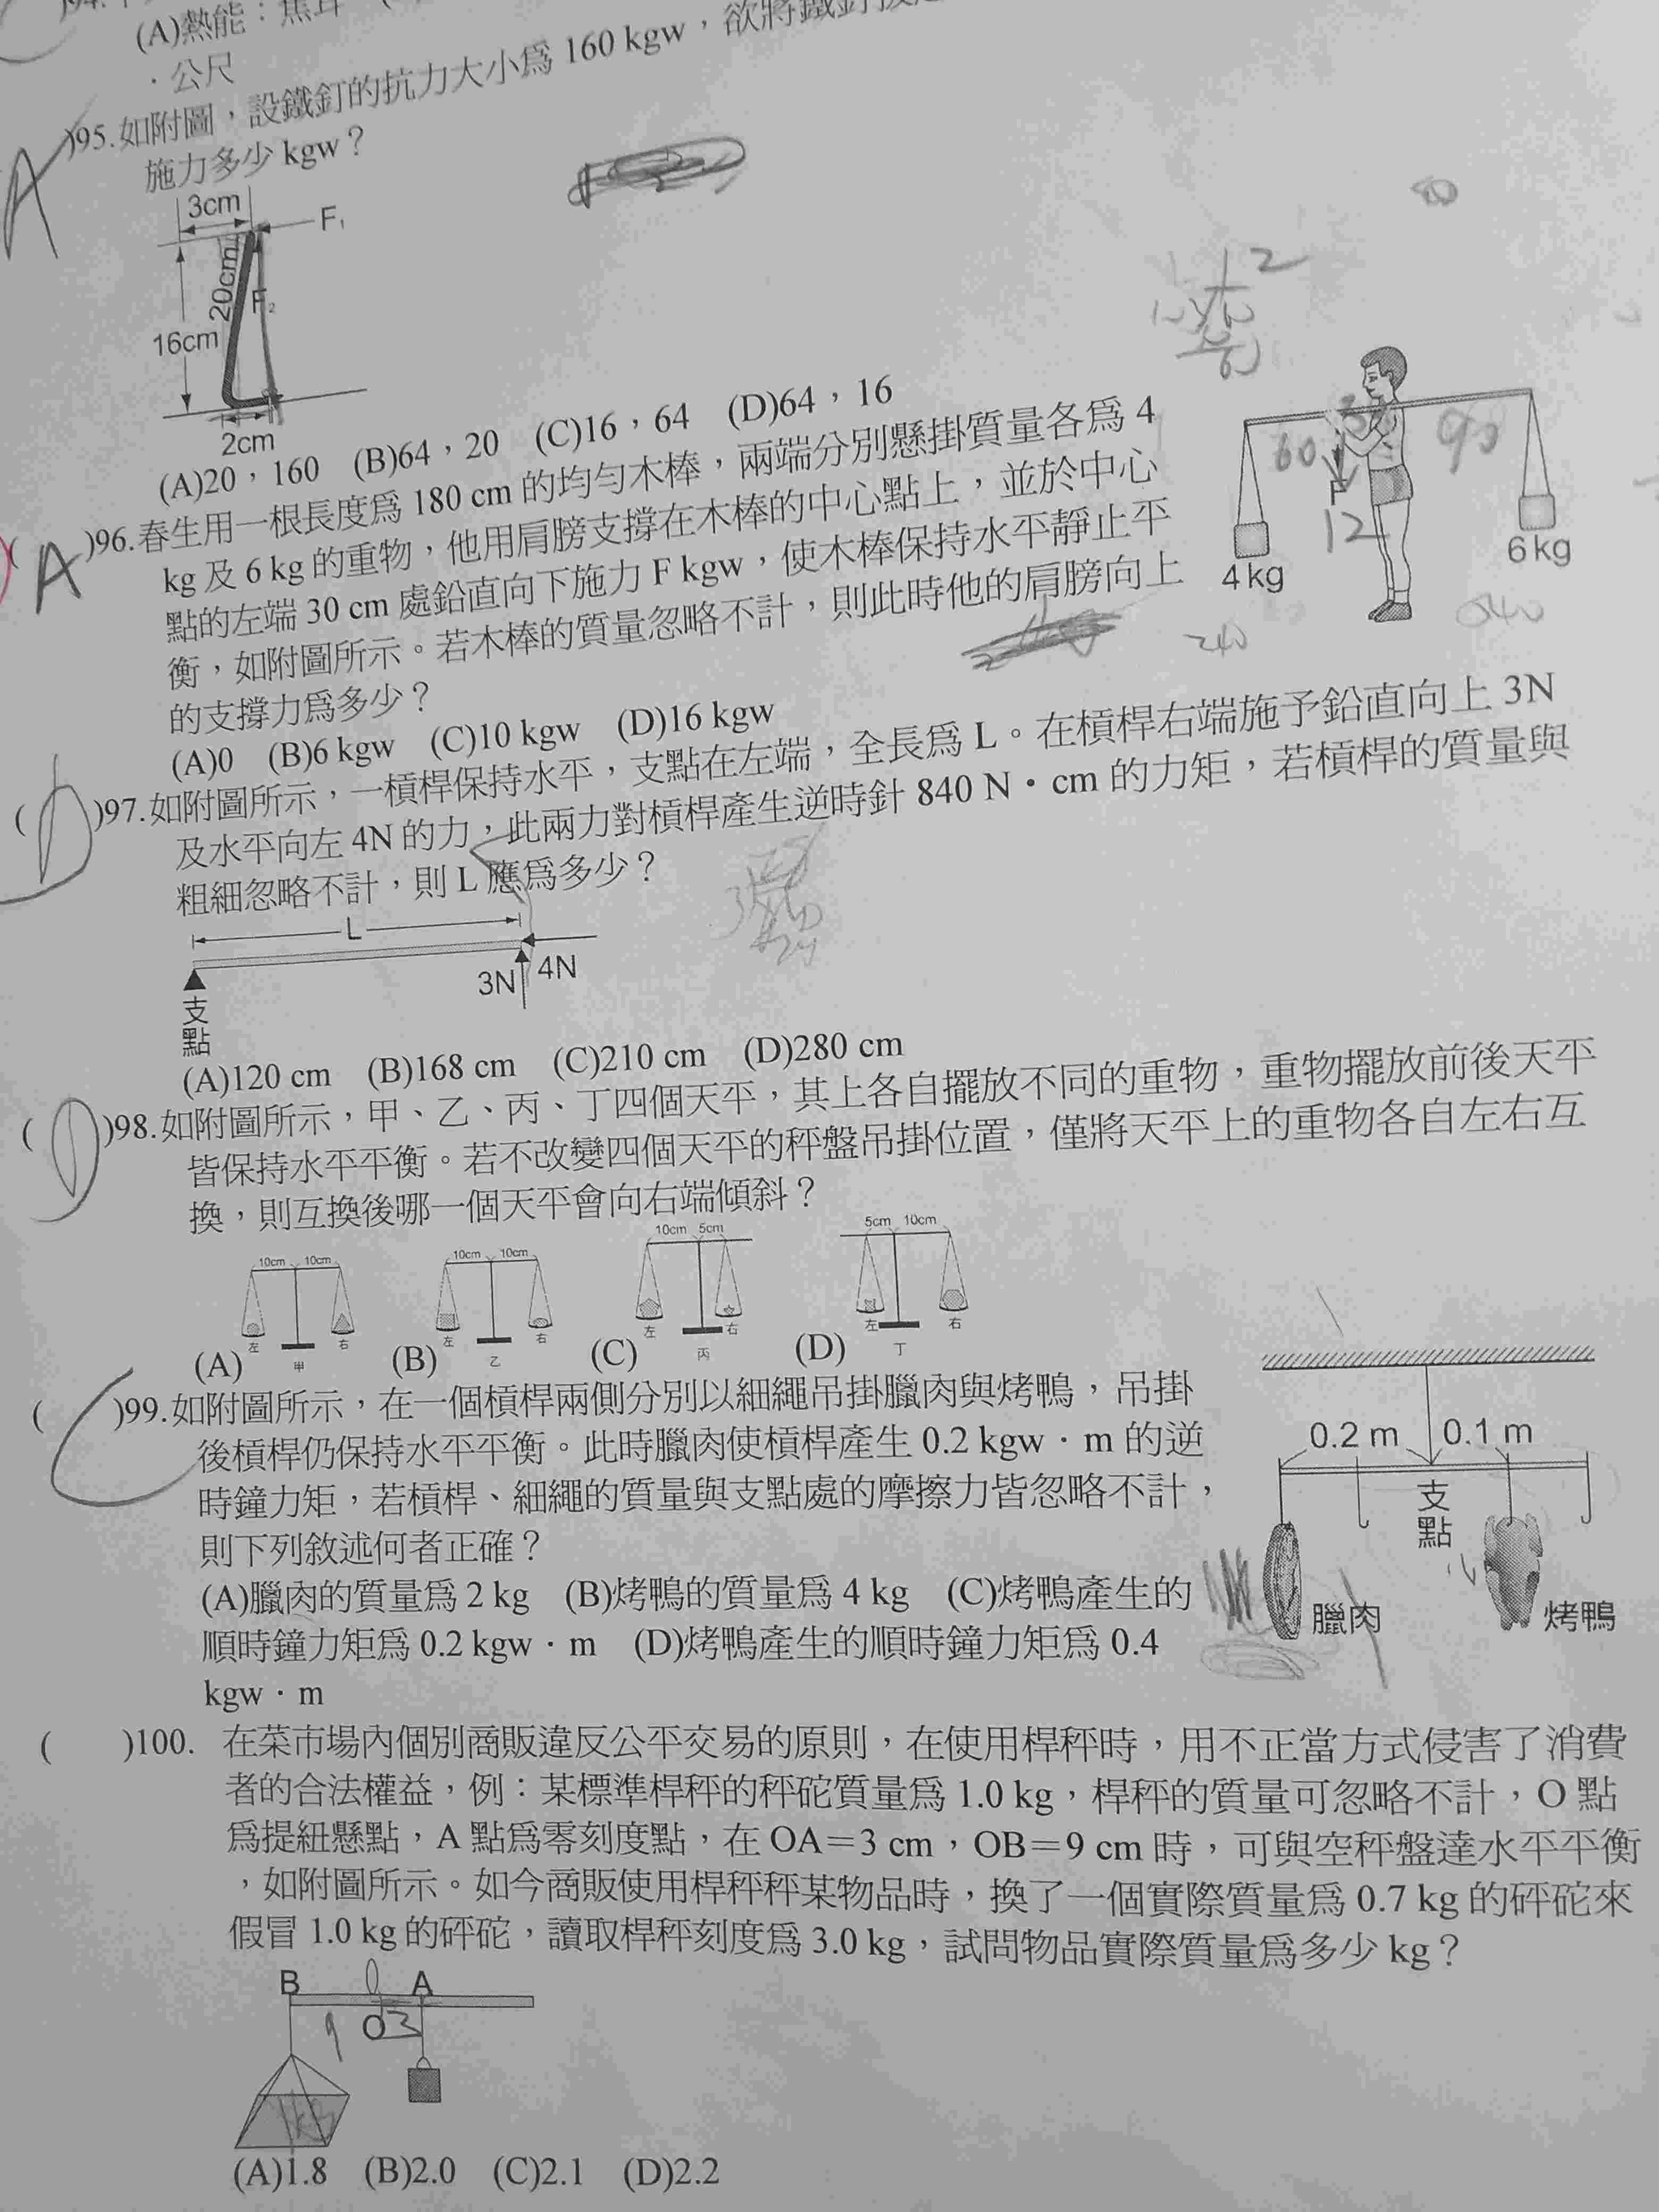 (A)熱能：焦耳
．公尺
)95.如附圖，設鐵釘的抗力大小為 160 kgw，欲將鐵釘
施力多少 kgw？
3cm
F₁
20cm
F₂
16cm
2cm
(A)20，160 (B)64，20 (C)16，64 (D)64，16
A
( A )96.春生用一根長度為 180 cm 的均勻木棒，兩端分別懸掛質量各為 4
kg 及 6 kg 的重物，他用肩膀支撐在木棒的中心點上，並於中心
點的左端 30 cm 處鉛直向下施力 F kgw，使木棒保持水平靜止平
衡，如附圖所示。若木棒的質量忽略不計，則此時他的肩膀向上
的支撐力為多少？
(A)0 (B)6 kgw (C)10 kgw (D)16 kgw
60
30
90
F
12
4 kg
6 kg
240
540
( D )97.如附圖所示，一槓桿保持水平，支點在左端，全長為 L。在槓桿右端施予鉛直向上 3N
及水平向左 4N 的力，此兩力對槓桿產生逆時針 840 N・cm 的力矩，若槓桿的質量與
粗細忽略不計，則 L 應為多少？
L
3N
4N
支
點
(A)120 cm (B)168 cm (C)210 cm (D)280 cm
( D )98.如附圖所示，甲、乙、丙、丁四個天平，其上各自擺放不同的重物，重物擺放前後天平
皆保持水平平衡。若不改變四個天平的秤盤吊掛位置，僅將天平上的重物各自左右互
換，則互換後哪一個天平會向右端傾斜？
10cm 10cm
10cm 10cm
10cm 5cm
5cm 10cm
左 右
左 右
左 右
左 右
甲 乙 丙 丁
(A) (B) (C) (D)
( C )99.如附圖所示，在一個槓桿兩側分別以細繩吊掛臘肉與烤鴨，吊掛
後槓桿仍保持水平平衡。此時臘肉使槓桿產生 0.2 kgw．m 的逆
時鐘力矩，若槓桿、細繩的質量與支點處的摩擦力皆忽略不計，
則下列敘述何者正確？
(A)臘肉的質量為 2 kg (B)烤鴨的質量為 4 kg (C)烤鴨產生的
順時鐘力矩為 0.2 kgw．m (D)烤鴨產生的順時鐘力矩為 0.4
kgw．m
0.2 m
0.1 m
支
點
臘肉
烤鴨
( )100. 在菜市場內個別商販違反公平交易的原則，在使用桿秤時，用不正當方式侵害了消費
者的合法權益，例：某標準桿秤的秤砣質量為 1.0 kg，桿秤的質量可忽略不計，O 點
為提紐懸點，A 點為零刻度點，在 OA＝3 cm，OB＝9 cm 時，可與空秤盤達水平平衡
，如附圖所示。如今商販使用桿秤秤某物品時，換了一個實際質量為 0.7 kg 的砰砣來
假冒 1.0 kg 的砰砣，讀取桿秤刻度為 3.0 kg，試問物品實際質量為多少 kg？
B
A
O
9
3
(A)1.8 (B)2.0 (C)2.1 (D)2.2